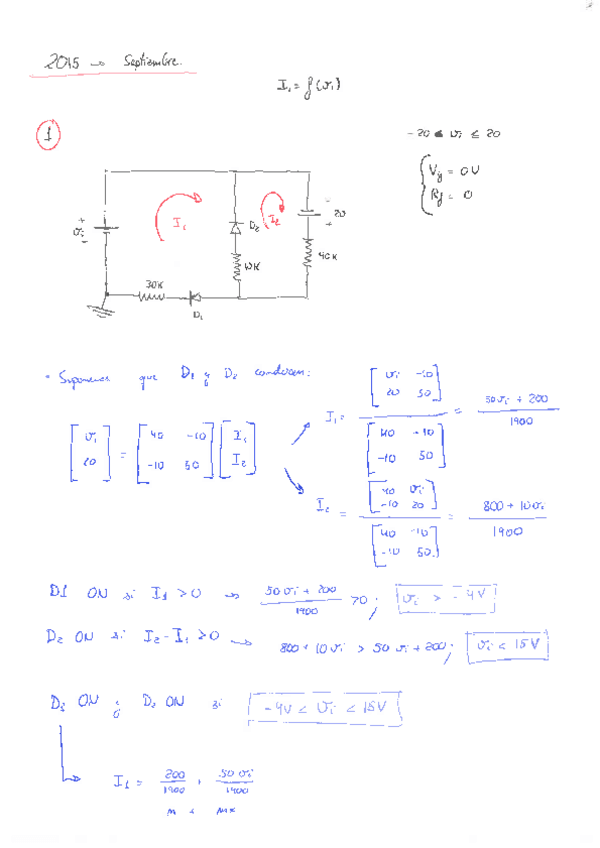 2015 → Septiembre.
I₁ = f(vi)
1
-20 ≤ vi ≤ 20
Vγ = 0V
Rf = 0
+
vi
-
I₁
D₂
I₂
-
20
+
10K
40K
30K
D₁
* Suponemos que D1 y D2 conducen:
[vi; 20] = [40 -10; -10 50] [I₁; I₂]
I₁ = [vi -10; 20 50] / [40 -10; -10 50] = (50vi + 200) / 1900
I₂ = [40 vi; -10 20] / [40 -10; -10 50] = (800 + 10vi) / 1900
D1 ON si I1 > 0 → (50vi + 200) / 1900 > 0; vi > -4V
D2 ON si I2 - I1 > 0 → 800 + 10vi > 50vi + 200; vi < 15V
D1 ON y D2 ON si -4V ≤ vi ≤ 15V
I1 = 200/1900 + 50vi/1900
n + mx